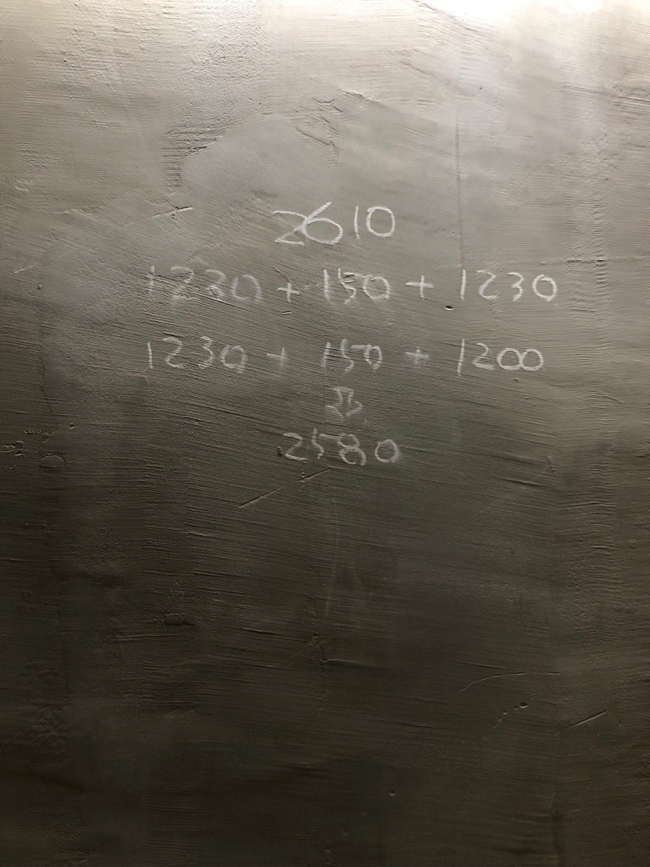 2610
1230 + 150 + 1230
1230 + 150 + 1200
2580